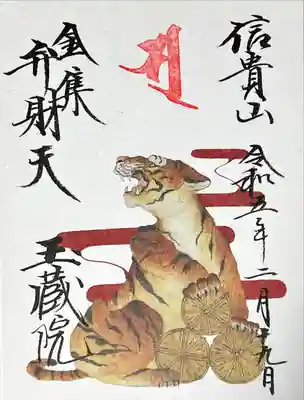 信貴山
令和五年二月十九日
金集
弁財天
玉蔵院